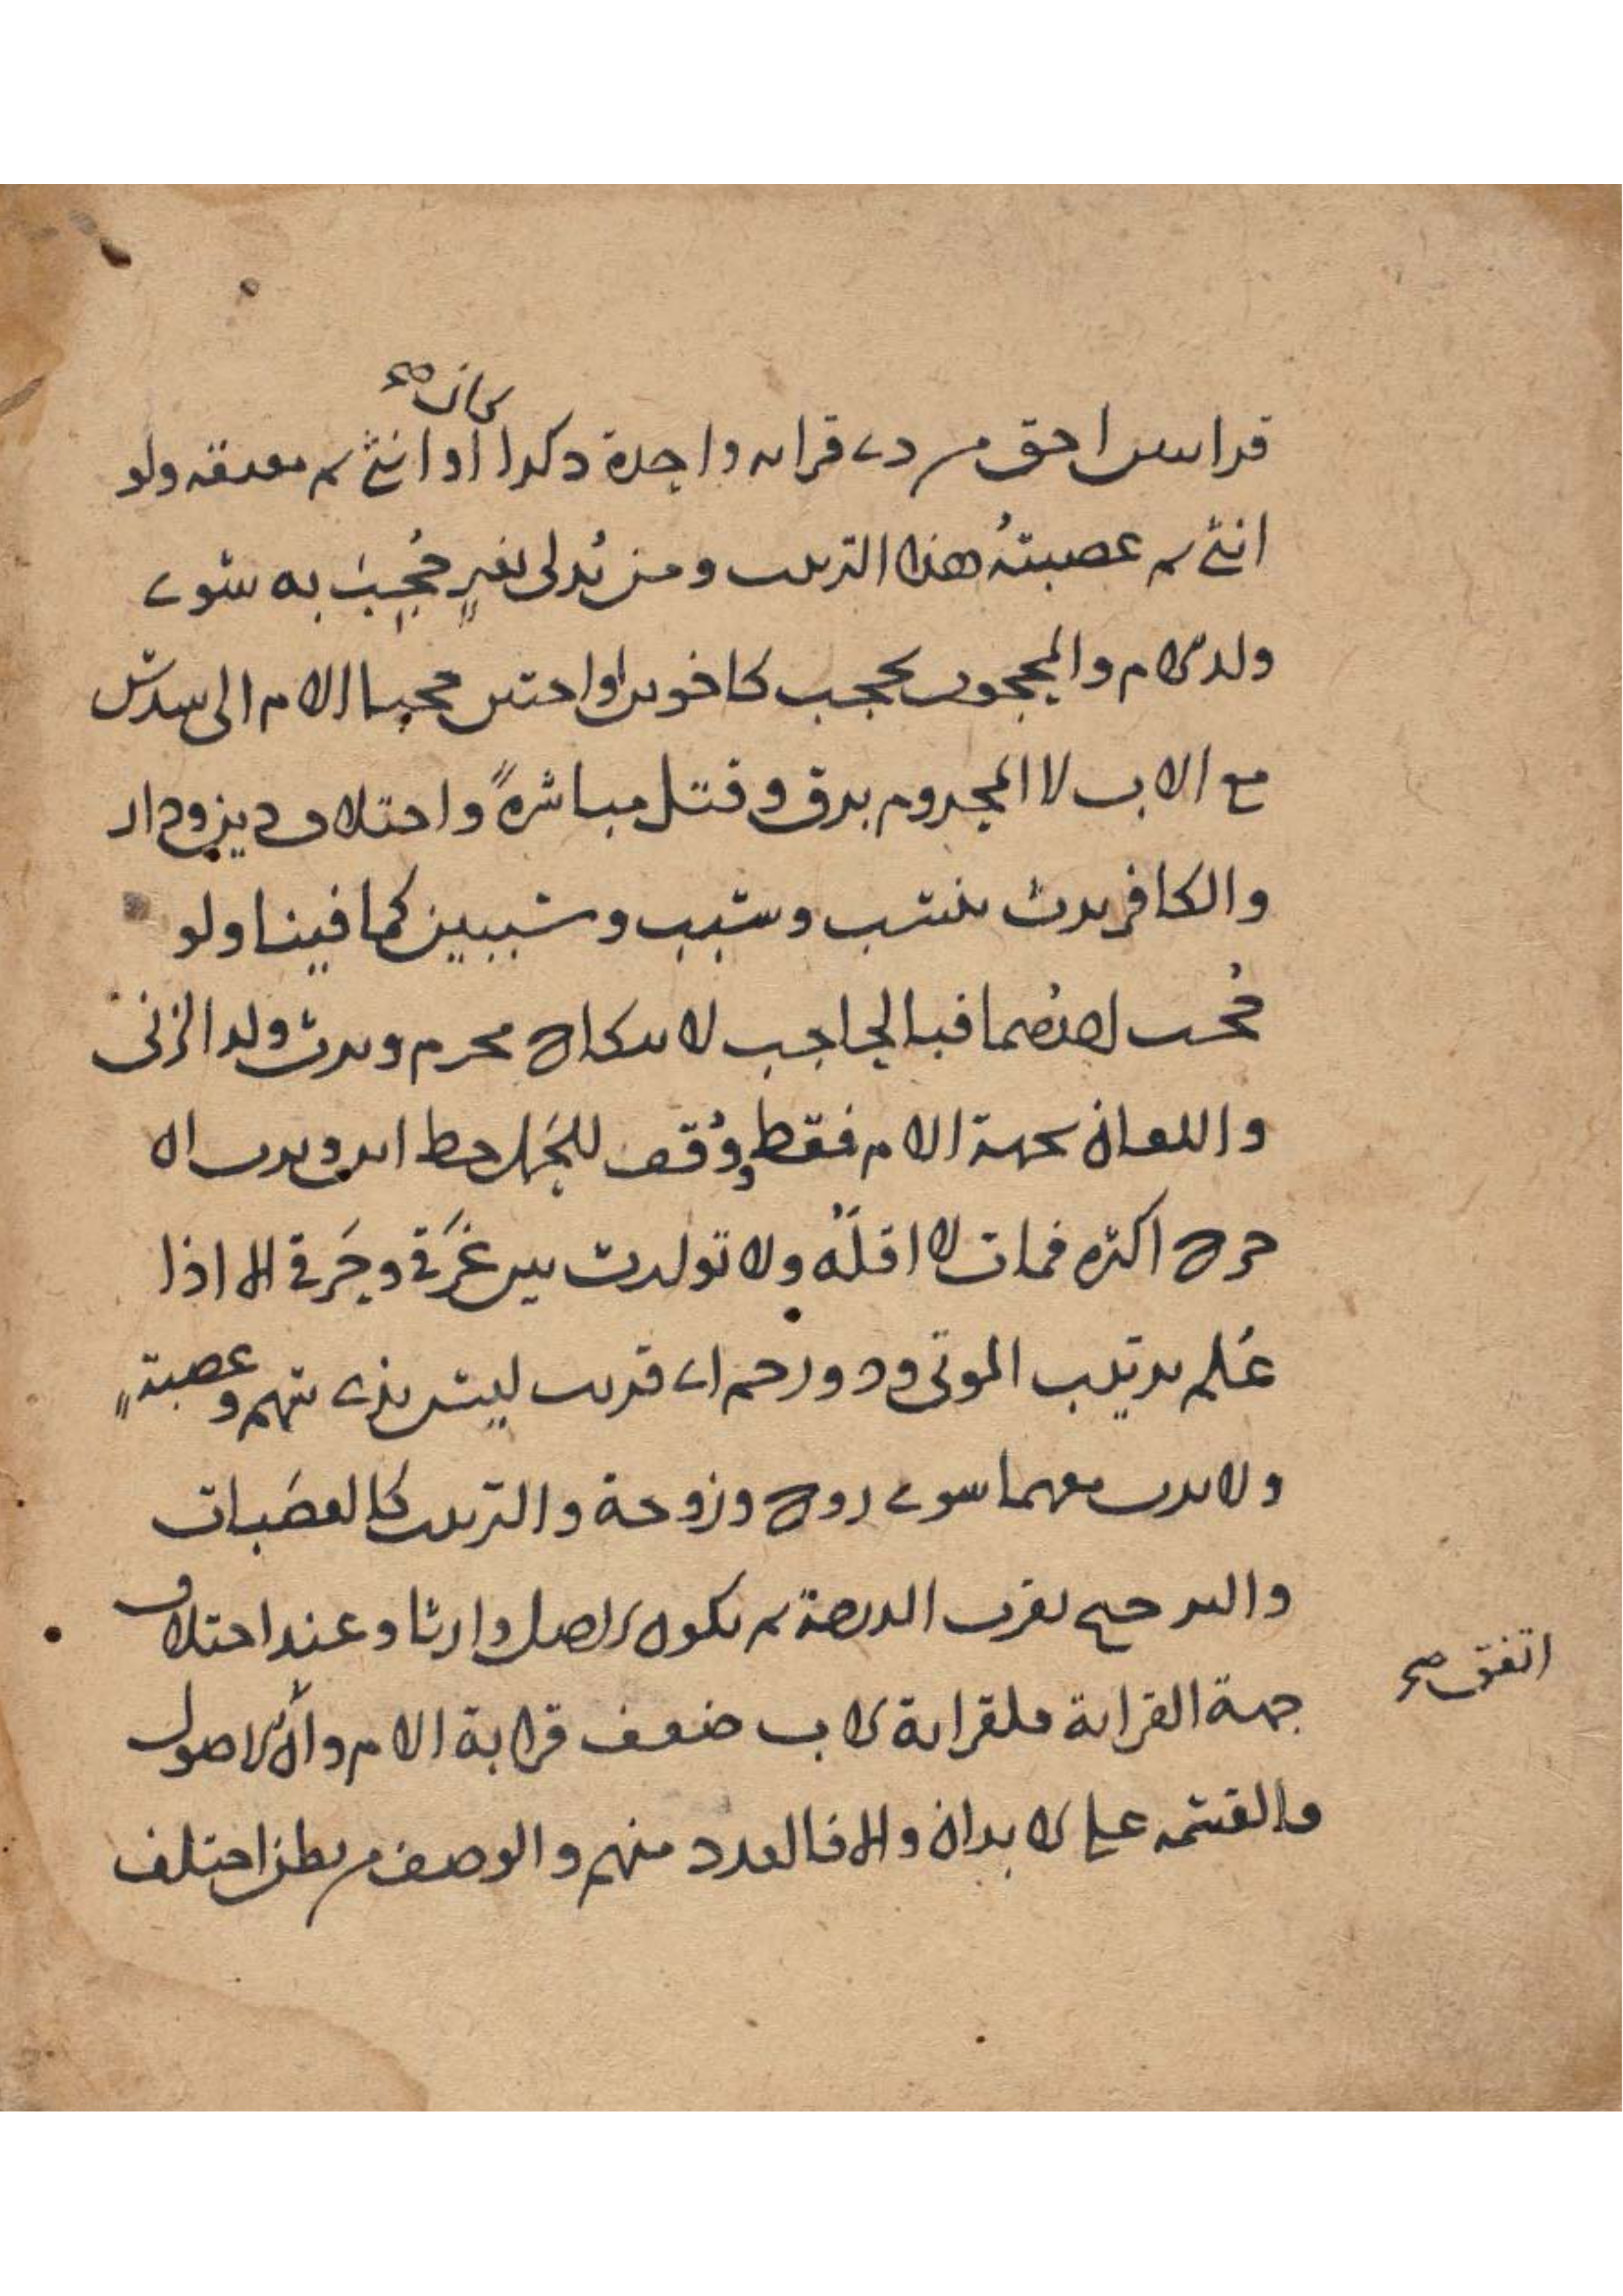 كان صح
قرابتين احق من ذي قرابه واحدة ذكرا او انثى ثم معتقه ولو
انثى ثم عصبته هذا الترتيب ومن يدلى بغير حجب به سوى
ولد الام والمحجوب يحجب كاخوين او اختين حجبا الام الى سدس
مع الاب لا المحروم برق وقتل مباشرة واختلاف دين ودار
والكافر يرث بنسب وسبب وسببين كما فينا ولو
حجب احدهما فبالحاجب لا بنكاح محرم ويرث ولد الزنى
واللعان بجهة الام فقط ووقف للحمل حظ ابن ويرث ان
خرج اكثره فمات لا اقله ولا توارث بين غرقى وحرقى الا اذا
علم ترتيب الموتى وذو رحم اي قريب ليس بذي سهم وعصبة
ولا يرث معهما سوى زوج وزوجة والترتيب كالعصبات
والترجيح بقرب الدرجة ثم بكون الاصل وارثا وعند اختلاف
جهة القرابة فلقرابة الاب ضعف قرابة الام وان الاصول
اتفق صح
فالقسمه على الابدان والا فالعدد منهم والوصف من بطن اختلف